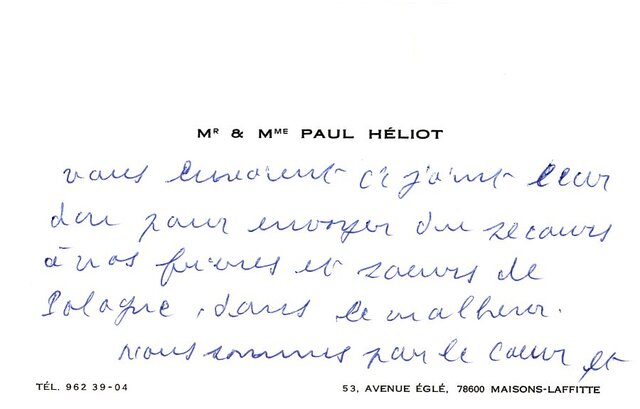 Mʳ & Mᵐᵉ PAUL HÉLIOT
vous envoient ci joint leur
don pour envoyer du secours
à nos frères et soeurs de
Pologne, dans le malheur.
Nous sommes par le coeur et
TÉL. 962 39-04
53, AVENUE ÉGLÉ, 78600 MAISONS-LAFFITTE